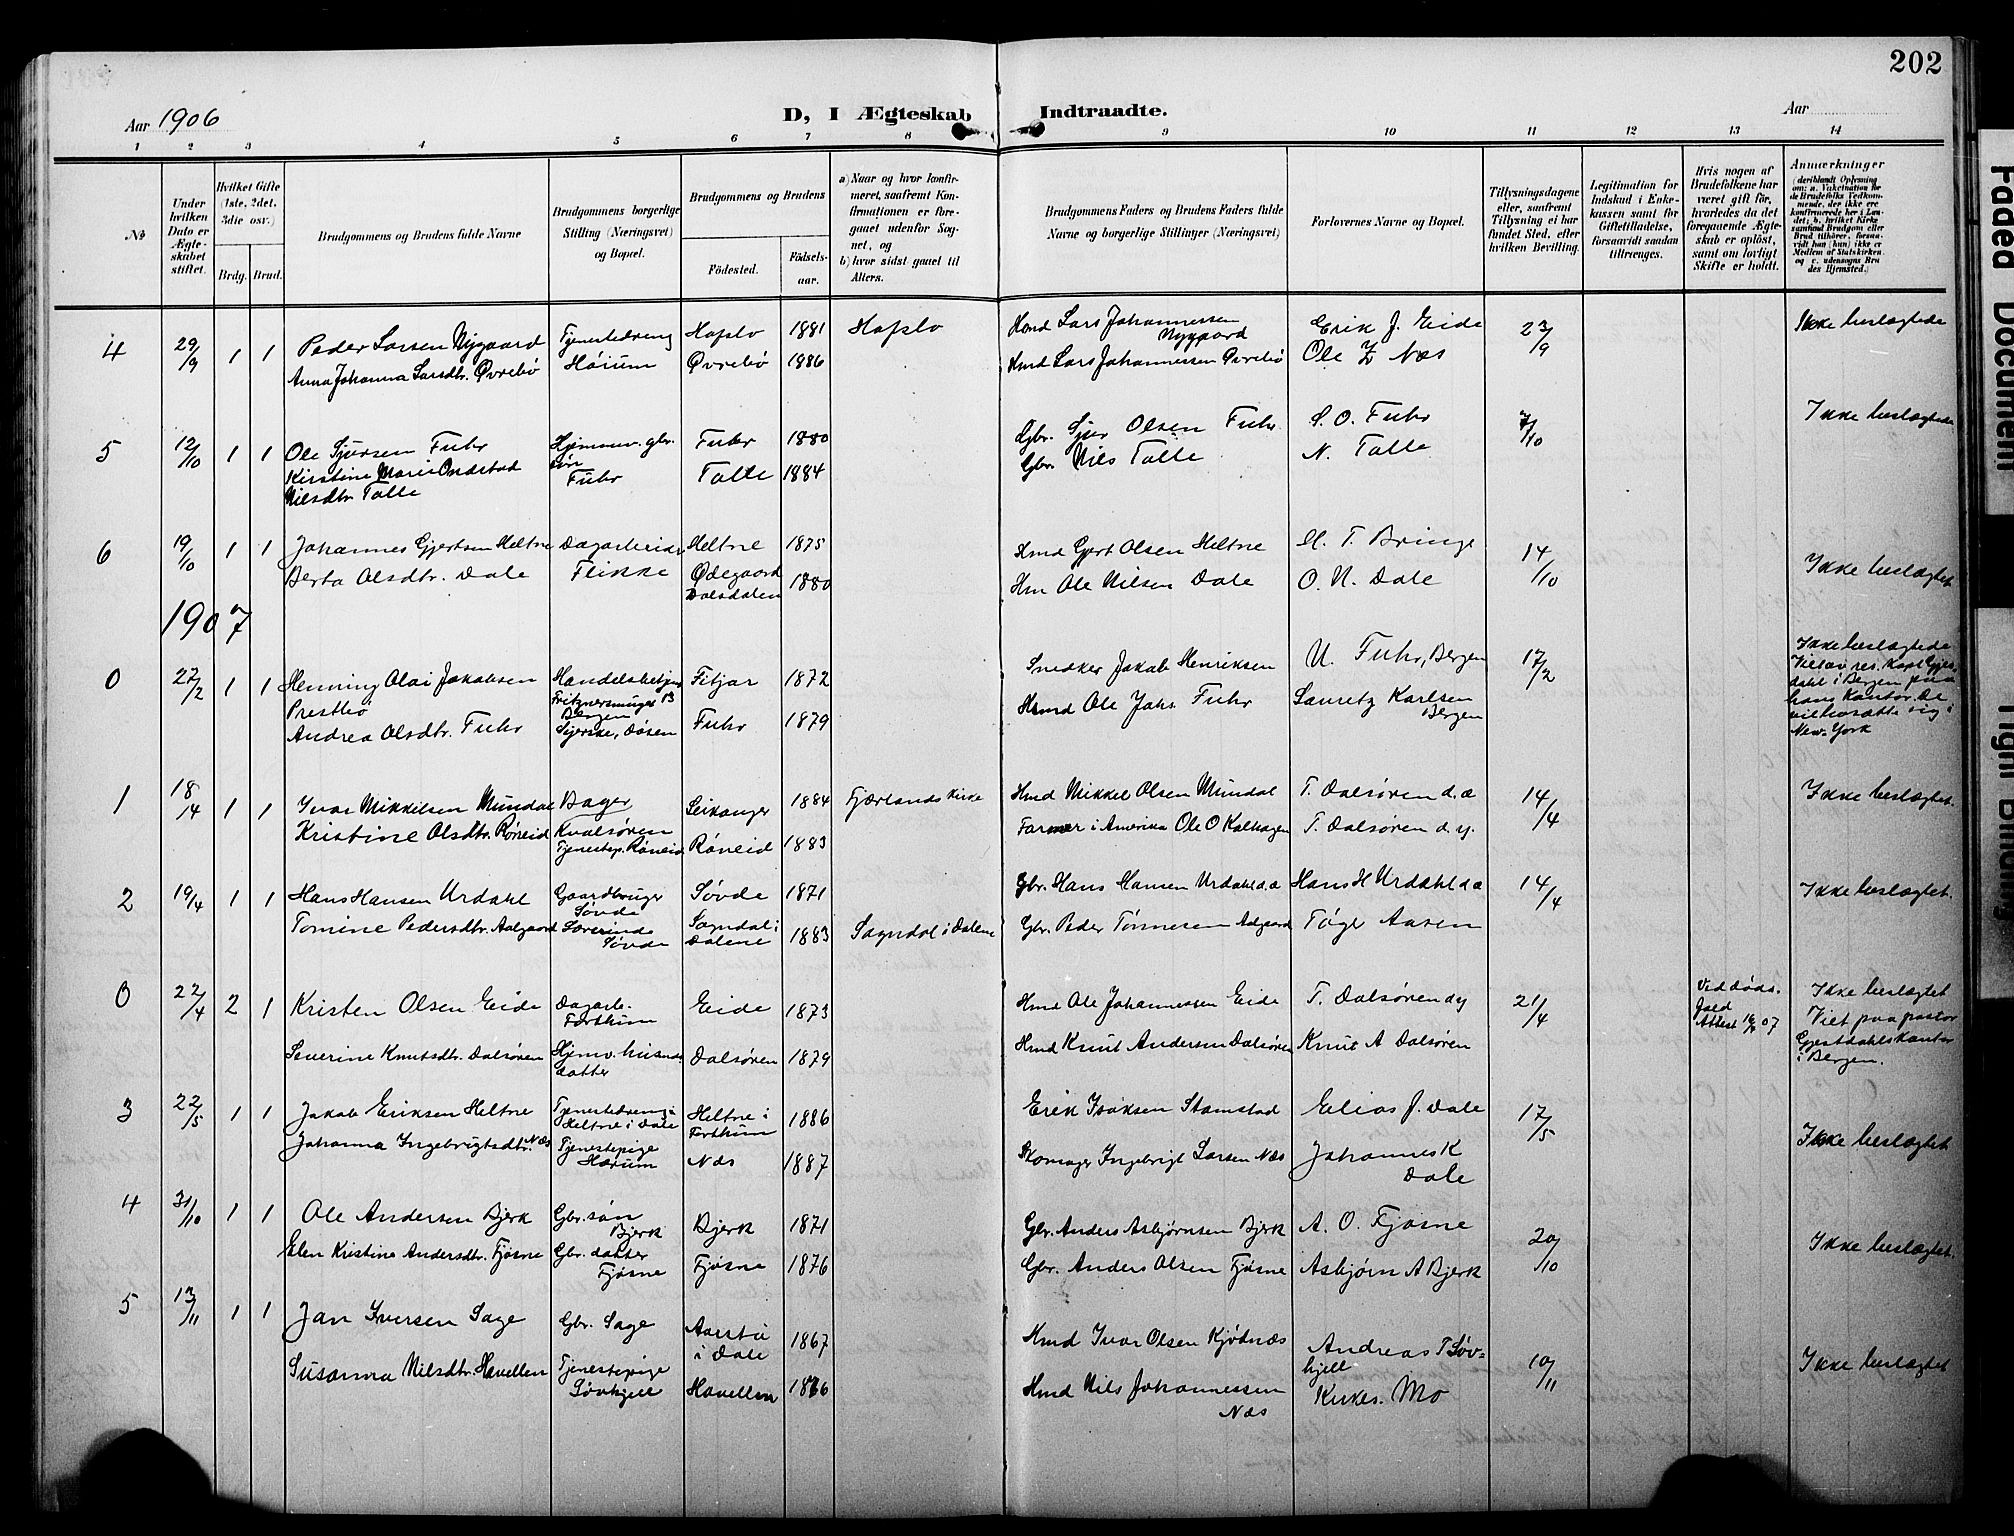 202
Aar 1906
D, I Ægteskab Indtraadte.
Aar
1 2 3 4 5 6 7 8 9 10 11 12 13 14
No
Under hvilken Dato er Ægteskabet stiftet.
Hvilket Gifte (1ste, 2det, 3die osv.)
Brdg. Brud.
Brudgommens og Brudens fulde Navne
Brudgommens borgerlige Stilling (Næringsvei) og Bopæl.
Brudgommens og Brudens
Fødested. Fødselsaar.
a) Naar og hvor konfirmeret, saafremt Konfirmationen er foregaaet udenfor Sognet, og
b) hvor sidst gaaet til Alters.
Brudgommens Faders og Brudens Faders fulde Navne og borgerlige Stillinger (Næringsvei)
Forlovernes Navne og Bopæl.
Tillysningsdagene eller, saafremt Tillysning ei har fundet Sted, efter hvilken Bevilling.
Legitimation for Indskud i Enkekassen samt for Giftetilladelse, forsaavidt saadan tiltrænges.
Hvis nogen af Brudefolkene har været gift før, hvorledes da det foregaaende Ægteskab er opløst, samt om lovligt Skifte er holdt.
Anmærkninger
4 29/9 1 1 Peder Larsen Nygaard Tjenestedreng Hafslo 1881 Hafslo Hmd Lars Johannessen Nygaard Erik J. Eide 23/9 Ikke beslægtede
Anna Johanna Larsdtr. Øvrebø Høium Øvrebø 1886 Hmd Lars Johannessen Øvrebø Ole Næs
5 12/10 1 1 Ole Sjursen Fuhr Hjemmev. gbr. søn Fuhr 1880 Gbr. Sjur Olsen Fuhr S. O. Fuhr 7/10 Ikke beslægtede
Kirstine Marie Nilsdtr. Talle Fuhr Talle 1884 Gbr. Nils Talle N. Talle
6 19/10 1 1 Johannes Gjertsen Heltne Dagarbeider Heltne 1875 Hmd Gjert Olsen Heltne T. Bringe 14/10 Ikke beslægtet
Berta Olsdtr. Dale Flikke Ødegaard Dalsdalen 1880 Hm Ole Nilsen Dale O. N. Dale
1907
0 27/2 1 1 Henning Olai Jakobsen Prestbø Handelsbetjent 13 Bergen Fitjar 1872 Snedker Jakob Henriksen Fuhr, Bergen 17/2 Ikke beslægtede
Viet av res. Kapl. Gjesdahl i Bergen paa hans Kontor. De vil bosætte sig i New-York
Andrea Olsdtr. Fuhr Sjerske, Døsen Fuhr 1879 Hmd Ole Johs. Fuhr Lauritz Karlsen Bergen
1 18/4 1 1 Ivar Mikkelsen Mundal Bager Kvalsøren Leikanger 1884 Fjærlands Kirke Hmd Mikkel Olsen Mundal T. Dalsøren d.æ 14/4 Ikke beslægtet.
Kristine Olsdtr. Røneid Tjenestep. Røneid Røneid 1883 Farmer i Amerika Ole O Kalhagen T. Dalsøren d. y.
2 19/4 1 1 Hans Hansen Urdahl Gaardbruger Søvde Søvde 1871 Gbr. Hans Hansen Urdahl d.æ Hans H Urdahl d.æ 14/4 Ikke beslægtet.
Tomine Pedersdtr. Aalgaard Lærerinde Søvde Sogndal i Dalene 1883 Sogndal i Dalene Gbr. Peder Tønnesen Aalgaard Tøger Aasen
0 22/4 2 1 Kristen Olsen Eide Dagarb. Forthun Eide 1873 Hmd Ole Johannessen Eide T. Dalsøren d y 21/4 Ved dødsfald Attest 07 Ikke beslægtet
Viet paa pastor Gjesdahls kontor i Bergen.
Severine Knutsdtr. Dalsøren Hjmv. husmdatter Dalsøren 1879 Hmd Knut Andersen Dalsøren Knut A Dalsøren
3 22/5 1 1 Jakob Eriksen Heltne Tjenestedreng Heltne i Dale Heltne i Forthun 1886 Erik Isaksen Stamstad Elias J. Dale 17/5 Ikke beslægtet
Johanna Ingebrigtsdtr. Næs Tjenestepige Hærum Næs 1887 Skomager Ingebrigt Larsen Næs Johannes K Dale
4 31/10 1 1 Ole Andersen Bjerk Gbr. søn Bjerk Bjerk 1871 Gbr. Anders Asbjørnsen Bjerk A. O. Fjøsne 20/10 Ikke beslægtet.
Elen Kristine Andersdtr. Fjøsne Gbr. datter Fjøsne Fjøsne 1876 Gbr. Anders Olsen Fjøsne Asbjørn A Bjerk
5 13/11 1 1 Jan Iversen Sage Gbr. Sage i Dale 1867 Hmd Ivar Olsen Kjødnæs Andreas T Søvhjell 10/11 Ikke beslægtet
Susanna Nilsdtr. Havellen Tjenestepige Søvhjell Havellen 1866 Hmd Nils Johannessen Næs Kirkes. Mo
Faded Document
Tight Binding